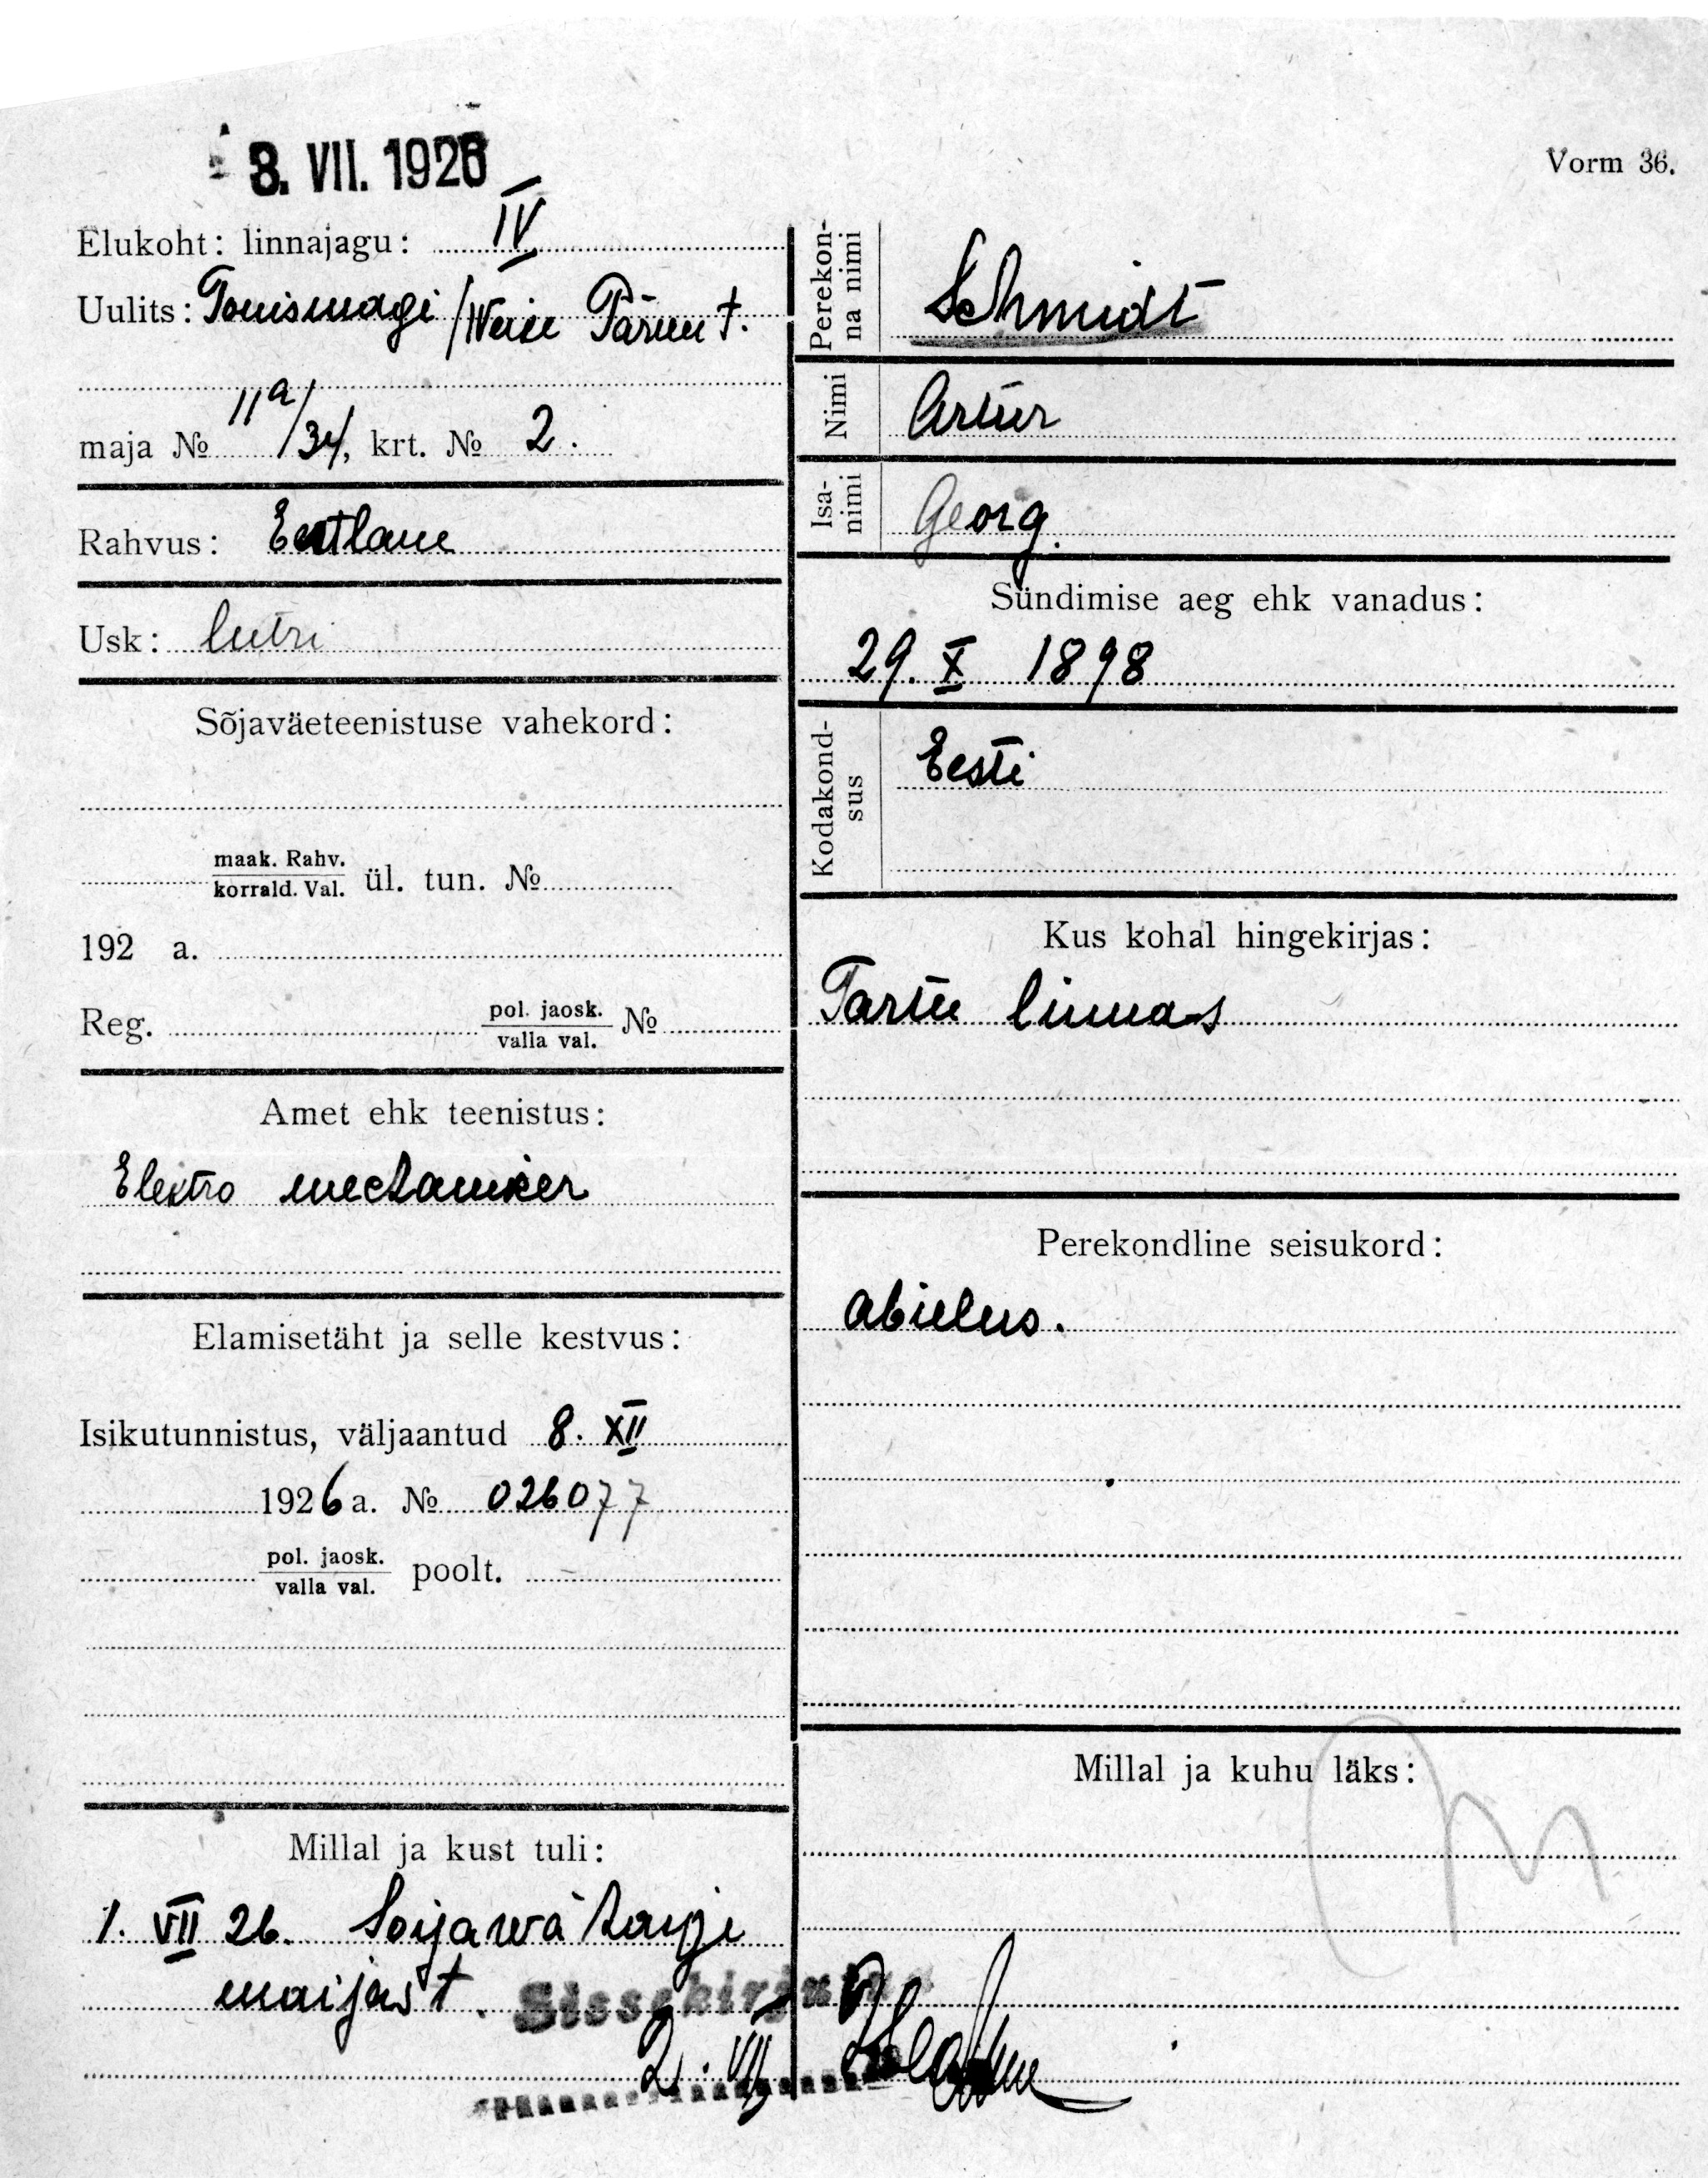 3. VII. 1926
Vorm 36.
Elukoht: linnajagu: IV
Uulits: Tonismagi / Weike Pärnu t.
maja № 11a/34, krt. № 2.
Rahvus: Eestlane
Usk: lutri
Sõjaväeteenistuse vahekord:
maak. Rahv.
korrald. Val. ül. tun. №
192 a.
Reg. pol. jaosk.
valla val. №
Amet ehk teenistus:
Elektro mechaniker
Elamisetäht ja selle kestvus:
Isikutunnistus, väljaantud 8. XII
1926 a. № 026077
pol. jaosk.
valla val. poolt.
Millal ja kust tuli:
1. VII 26. Soijawä haige
maijast.
Sissekirjutud
2. VII
Perekon-
na nimi
Schmidt
Nimi
Artur
Isa-
nimi
Georg.
Sündimise aeg ehk vanadus:
29. X 1898
Kodakond-
sus
Eesti
Kus kohal hingekirjas:
Tartu linnas
Perekondline seisukord:
abielus.
Millal ja kuhu läks: